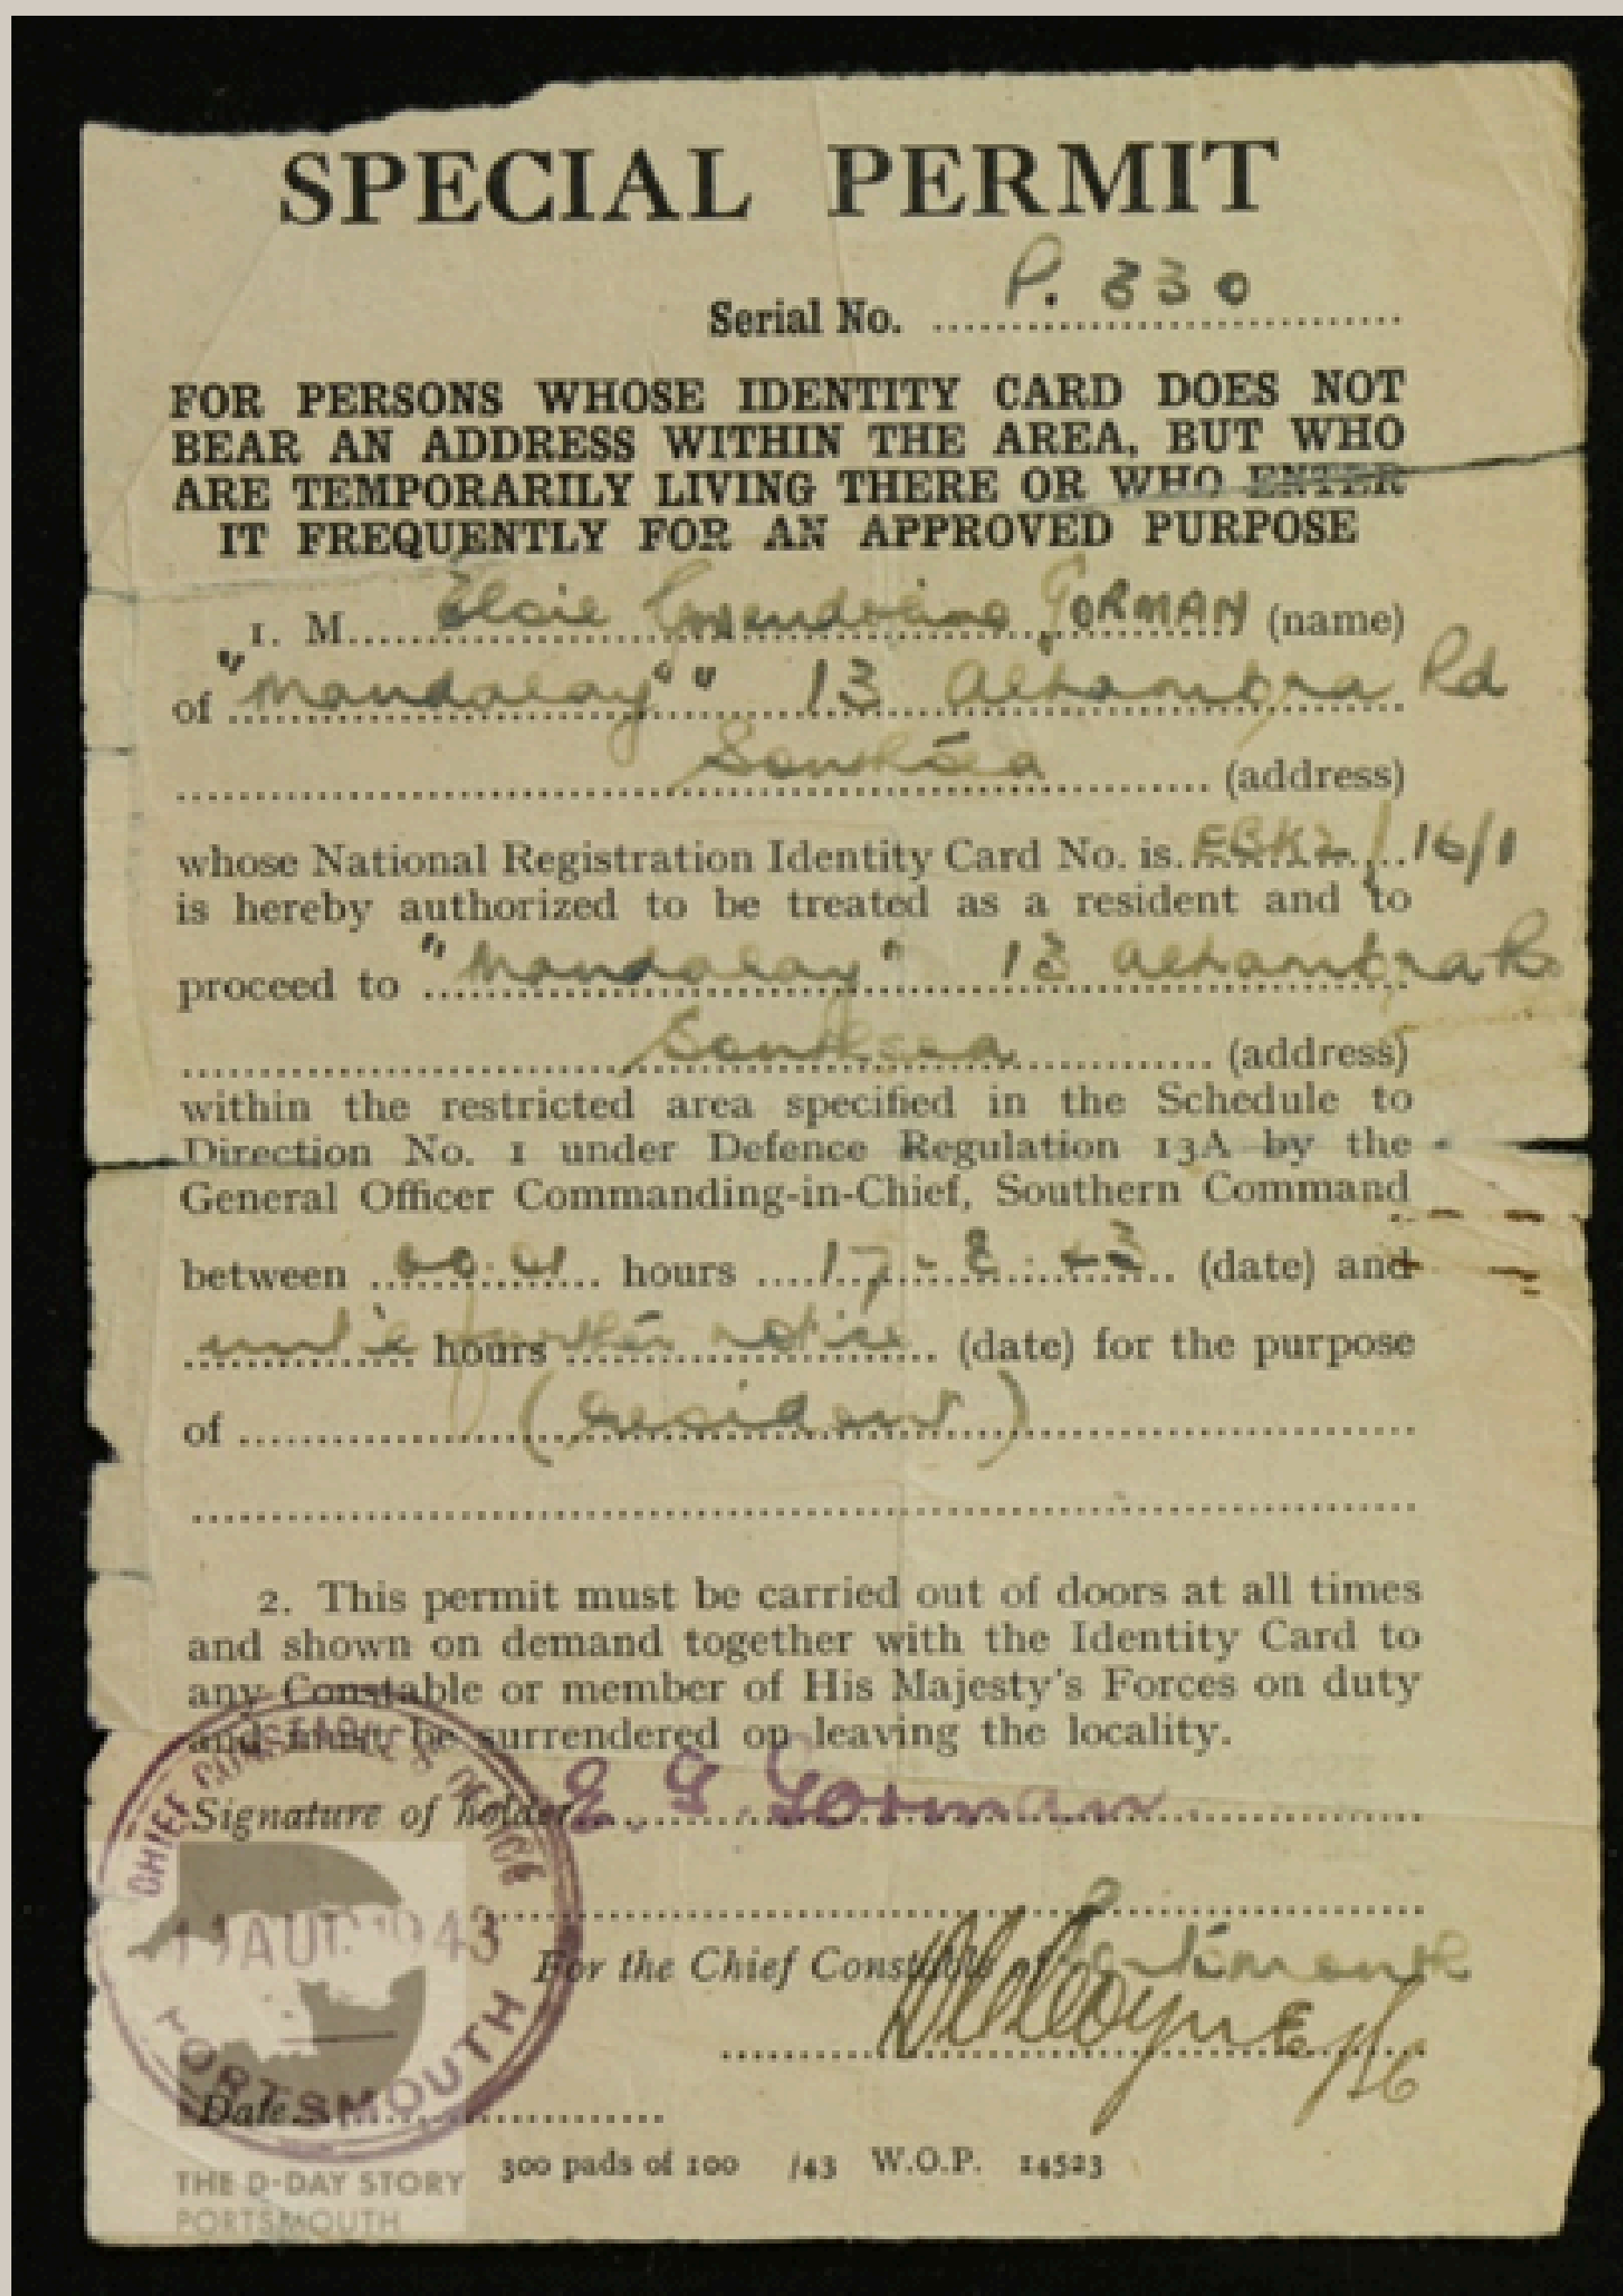 SPECIAL PERMIT
Serial No. P. 330
FOR PERSONS WHOSE IDENTITY CARD DOES NOT
BEAR AN ADDRESS WITHIN THE AREA, BUT WHO
ARE TEMPORARILY LIVING THERE OR WHO ENTER
IT FREQUENTLY FOR AN APPROVED PURPOSE
1. M Elsie Gwendoline GORMAN (name)
of "Mandalay" " 13 Alhambra Rd
Southsea (address)
whose National Registration Identity Card No. is. EBKZ / 16/1
is hereby authorized to be treated as a resident and to
proceed to "Mandalay" 13 Alhambra Rd
Southsea (address)
within the restricted area specified in the Schedule to
Direction No. 1 under Defence Regulation 13A by the
General Officer Commanding-in-Chief, Southern Command
between 00.01 hours 17 - 8 - 43 (date) and
until hours further notice (date) for the purpose
of (resident)
2. This permit must be carried out of doors at all times
and shown on demand together with the Identity Card to
any Constable or member of His Majesty's Forces on duty
and must be surrendered on leaving the locality.
Signature of holder E. G. Gorman
CHIEF CONSTABLE'S OFFICE
AUG 1943
PORTSMOUTH
For the Chief Constable of Portsmouth
Date
300 pads of 100 /43 W.O.P. 14523
THE D-DAY STORY
PORTSMOUTH